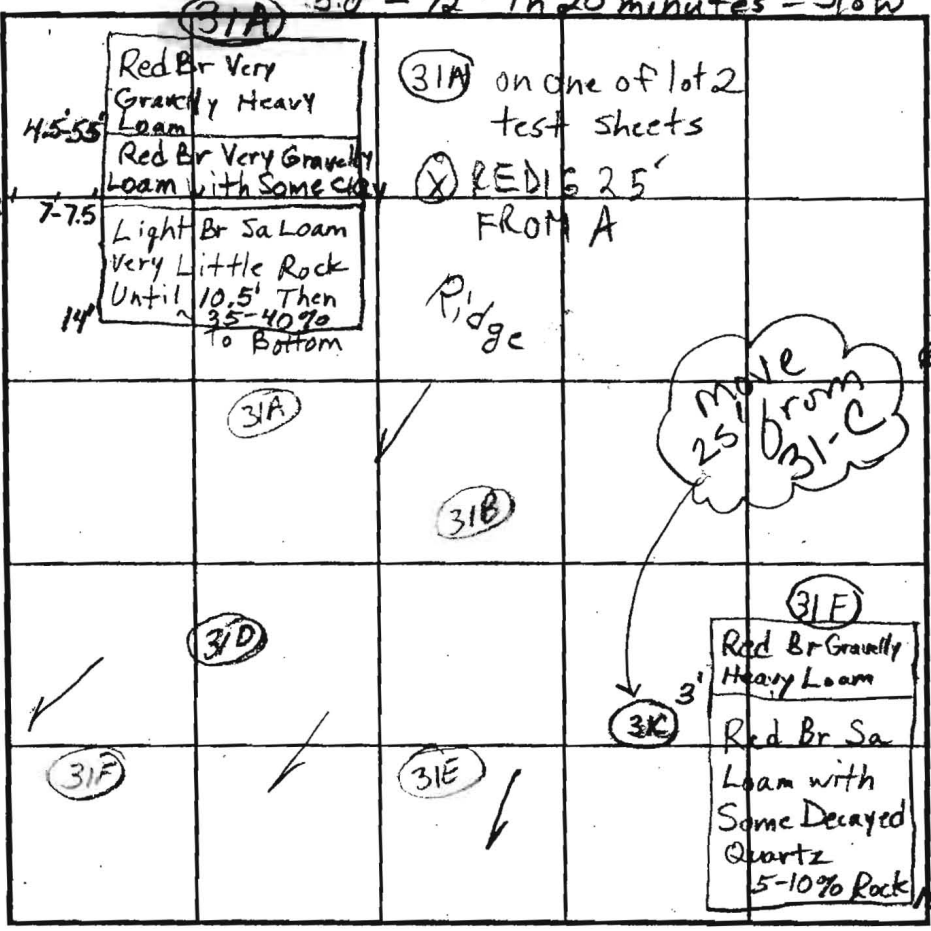 in 20 minutes - Slow
31A
Red Br Very
Gravelly Heavy
Loam
4.5'-5.5'
Red Br Very Gravelly
Loam with Some Clay
7-7.5
Light Br Sa Loam
Very Little Rock
Until 10.5' Then
~ 35-40%
14'
To Bottom
31A on one of lot 2
test sheets
X REDIG 25'
FROM A
Ridge
move
25' from
31-C
31A
31B
31D
31C
31F
31E
31F
Red Br Gravelly
Heavy Loam
3'
Red Br Sa
Loam with
Some Decayed
Quartz
5-10% Rock